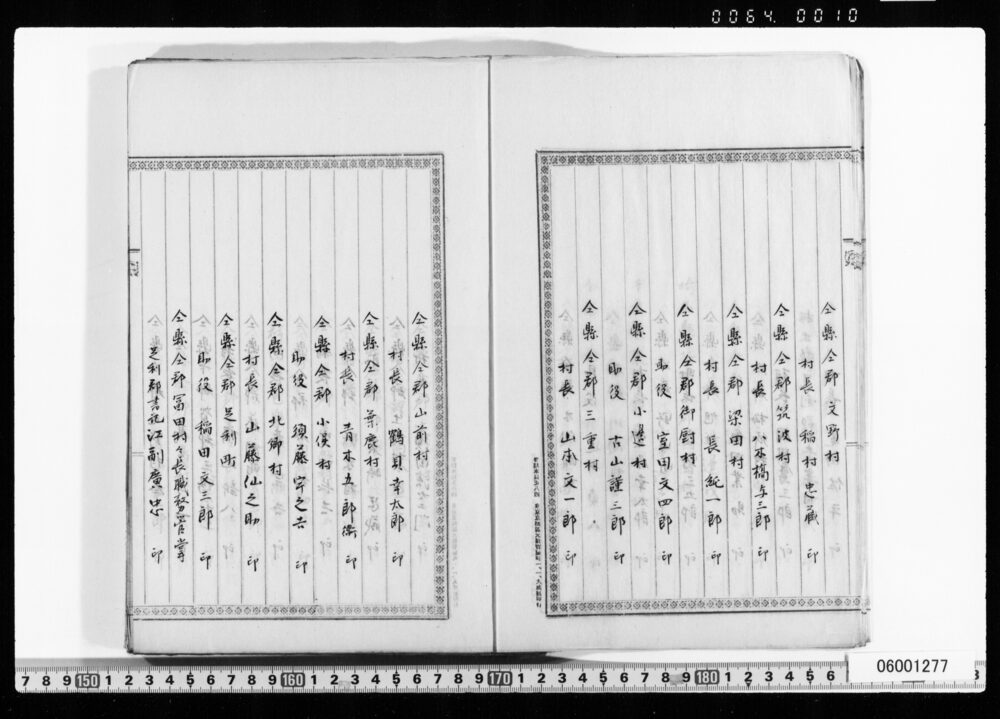 0064. 0010
仝縣仝郡文野村
村長 稲村忠蔵 印
仝縣仝郡筑波村
村長 八木橋与三郎 印
仝縣仝郡梁田村
村長 長 紙一郎 印
仝縣仝郡御厨村
助役 室田文四郎 印
仝縣仝郡小 村
助役 古山謹三郎 印
仝縣仝郡三重村
村長 山本文一郎 印
仝縣仝郡山前村
村長 鶴貝幸太郎 印
仝縣仝郡葉鹿村
村長 青木五郎衛 印
仝縣仝郡小俣村
助役 須藤宇之吉 印
仝縣仝郡北郷村
村長 山藤仙之助 印
仝縣仝郡足利町
助役 稲田文三郎 印
仝縣仝郡冨田村々長職務管掌
足利郡書記江副廣忠 印
7 8 9 150 1 2 3 4 5 6 7 8 9 160 1 2 3 4 5 6 7 8 9 170 1 2 3 4 5 6 7 8 9 180 1 2 3 4 5 6
06001277